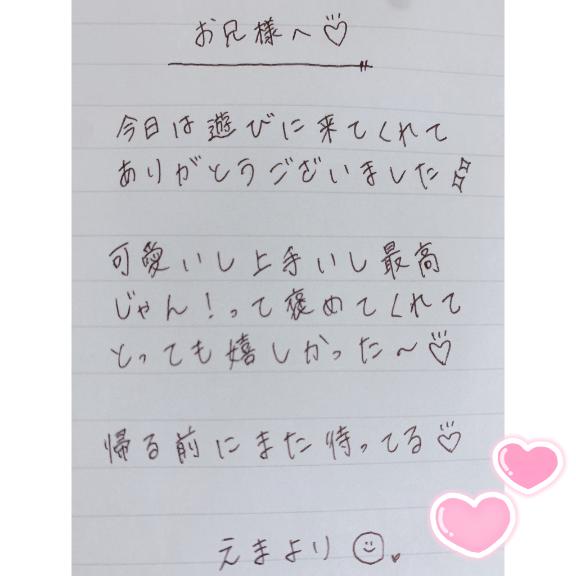 お兄様へ♡
今日は遊びに来てくれて
ありがとうございました
可愛いし上手いし最高
じゃん！って褒めてくれて
とっても嬉しかった〜♡
帰る前にまた待ってる♡
えまより